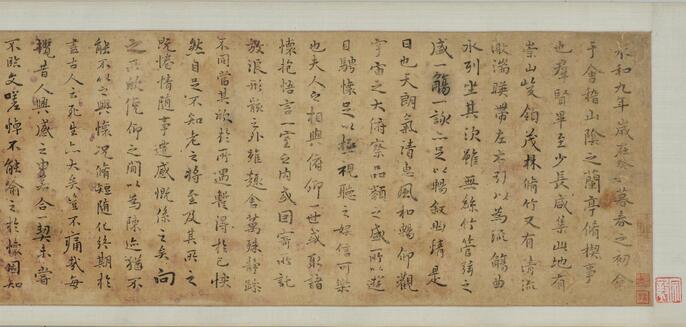 永和九年歲在癸丑暮春之初會
于會稽山陰之蘭亭脩稧事
也羣賢畢至少長咸集此地有
崇山峻領茂林脩竹又有清流
激湍暎帶左右引以為流觴曲
水列坐其次雖無絲竹管弦之
盛一觴一詠亦足以暢叙幽情是
日也天朗氣清惠風和暢仰觀
宇宙之大俯察品類之盛所以遊
目騁懷足以極視聽之娛信可樂
也夫人之相與俯仰一世或取諸
懷抱悟言一室之內或因寄所託
放浪形骸之外雖趣舍萬殊靜躁
不同當其欣於所遇暫得於己快
然自足不知老之將至及其所之
既惓情隨事遷感慨係之矣向
之所欣俛仰之間以為陳迹猶不
能不以之興懷況脩短隨化終期於
盡古人云死生亦大矣豈不痛哉每
攬昔人興感之由若合一契未嘗
不臨文嗟悼不能喻之於懷固知